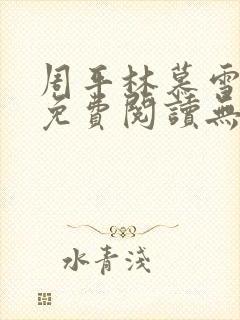 周平林慕雪
免費閱讀無
水青淺